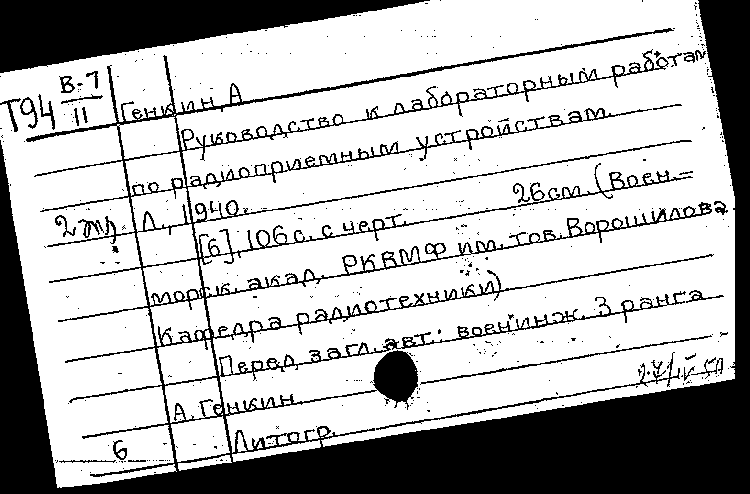 Т94 В-7/II
Генкин, А
Руководство к лабораторным работам
по радиоприемным устройствам.
2 экз. Л., 1940.
[6], 106 с. с черт. 26см. (Воен.=
морск. акад. РКВМФ им. тов. Ворошилова
Кафедра радиотехники).
Перед загл. авт.: воен.инж. 3 ранга
А. Генкин.
Литогр.
6